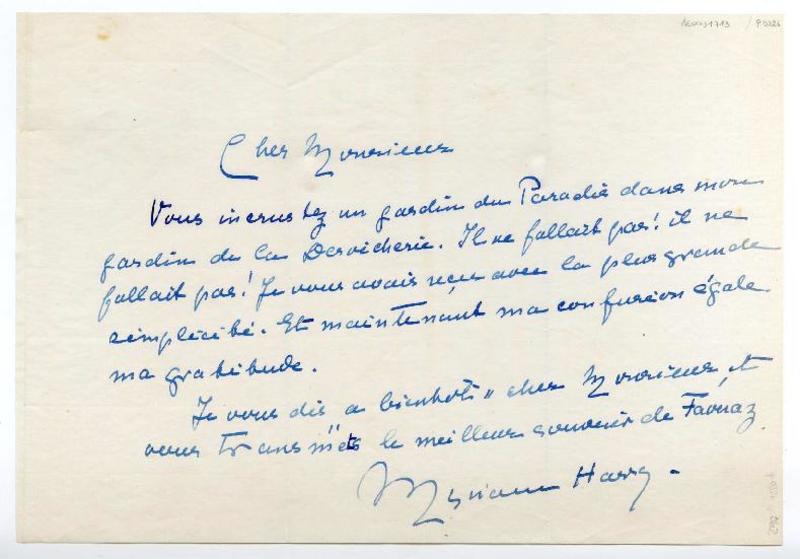 Cher Monsieur
Vous incrustez un jardin du Paradis dans mon
jardin de la Dervicherie. Il ne fallait pas! il ne
fallait pas! Je vous avais reçu avec la plus grande
simplicité. Et maintenant ma confusion égale
ma gratitude.
Je vous dis "a bientôt" cher Monsieur, et
vous transmets le meilleur souvenir de Faouaz
Myriam Harry.